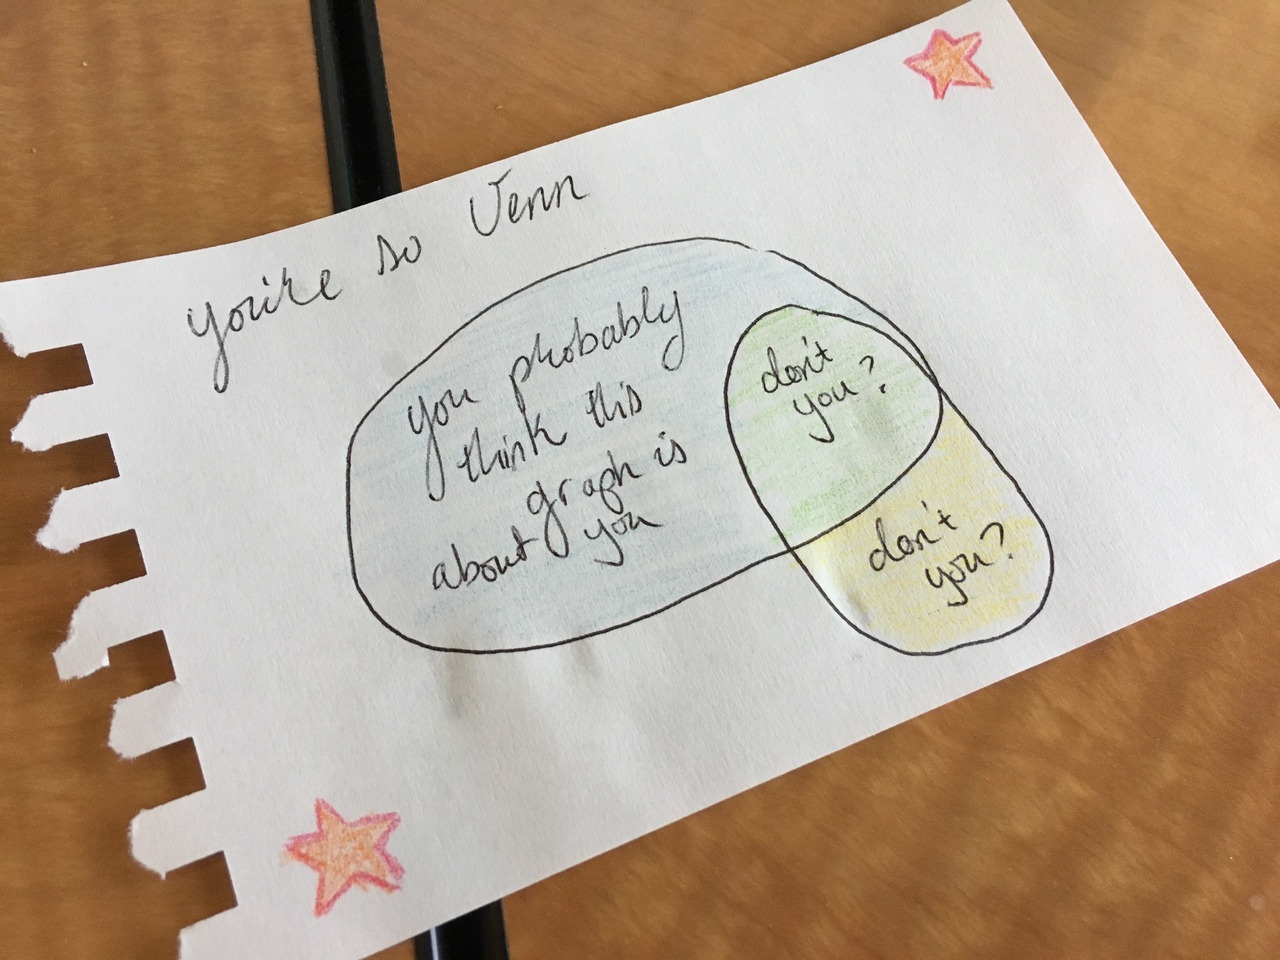 you're so Venn
you probably
think this
graph is
about you
don't
you?
don't
you?